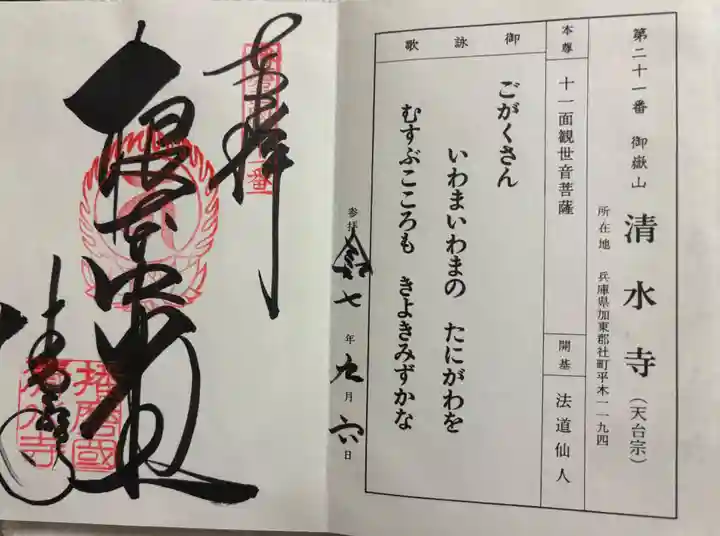 第二十一番 御嶽山 清水寺(天台宗)
所在地 兵庫県加東郡社町平木一一九四
本尊 十一面観世音菩薩
開基 法道仙人
御詠歌
ごがくさん
いわまいわまの たにがわを
むすぶこころも きよきみずかな
参拝 令七年九月六日
奉拝
根本中堂
清水寺
播磨國
清水寺